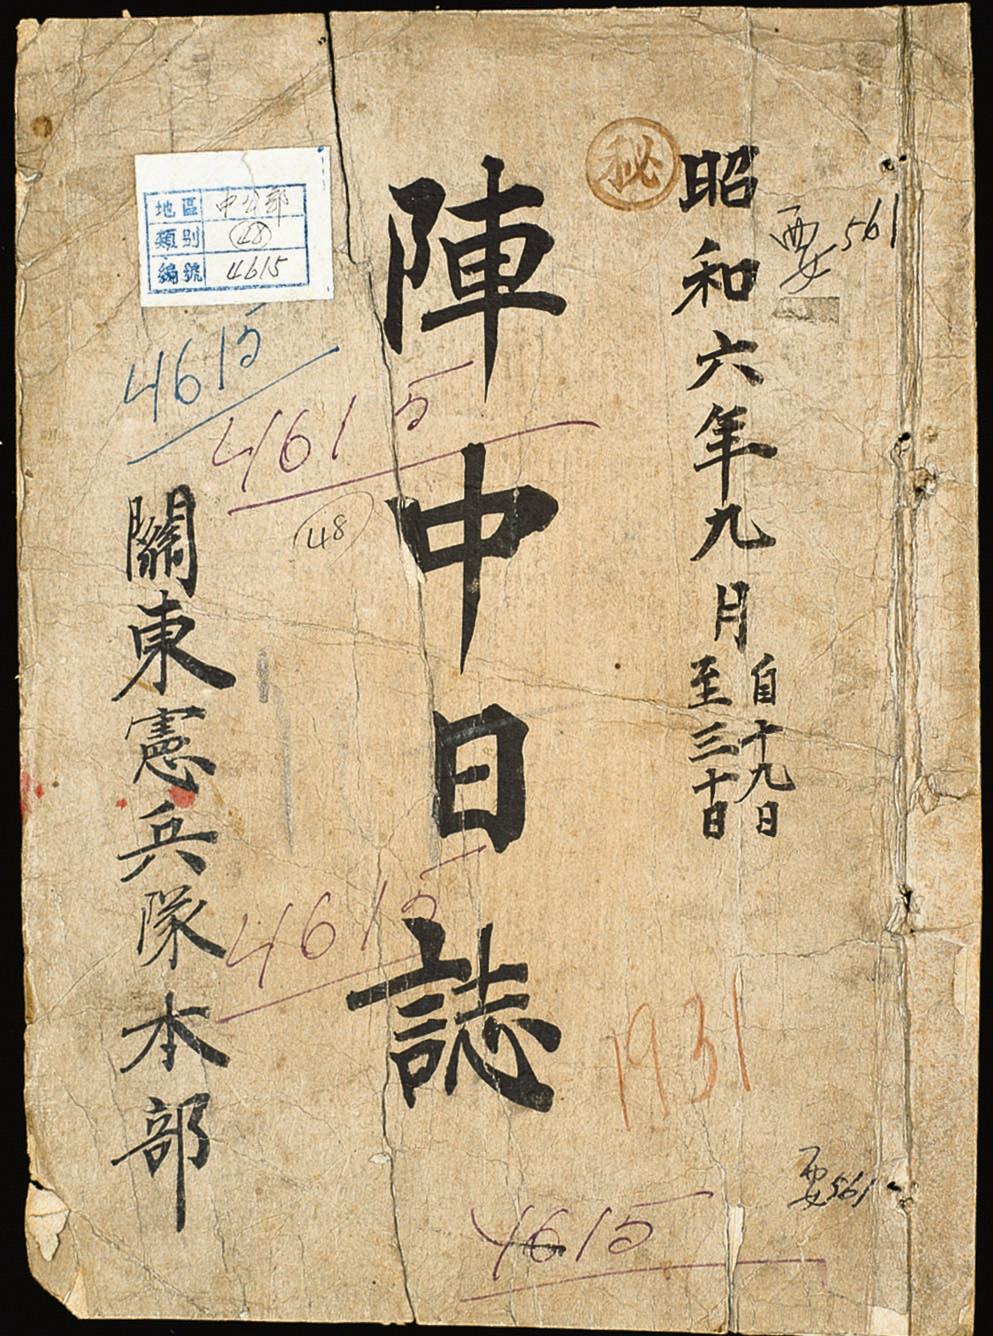 昭和六年九月自十九日至三十日
秘
要561
陣中日誌
關東憲兵隊本部
地區 中公部
類別 48
編號 4615
4615
4615
48
4615
1931
要561
4615